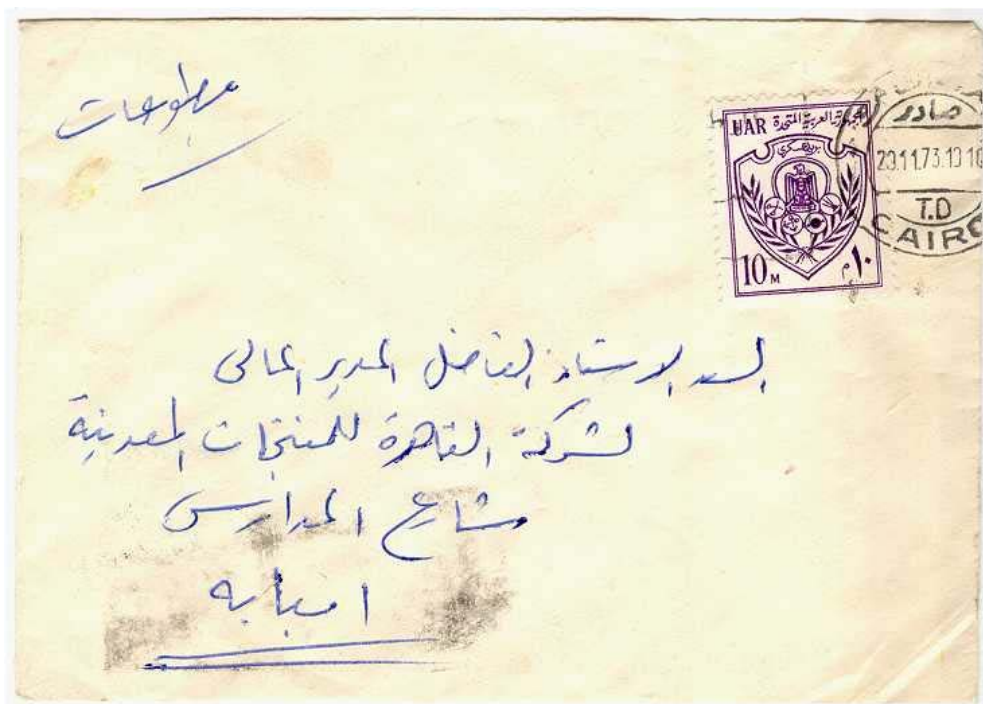 مطبوعات
UAR الجمهورية العربية المتحدة
بريد عسكري
10 M ١٠ م
صادر
29.11.73.13 10
T.D
CAIRO
السيد الاستاذ الفاضل المدير المالى
لشركة القاهرة للمنتجات المعدنية
شارع المدارس
امبابه